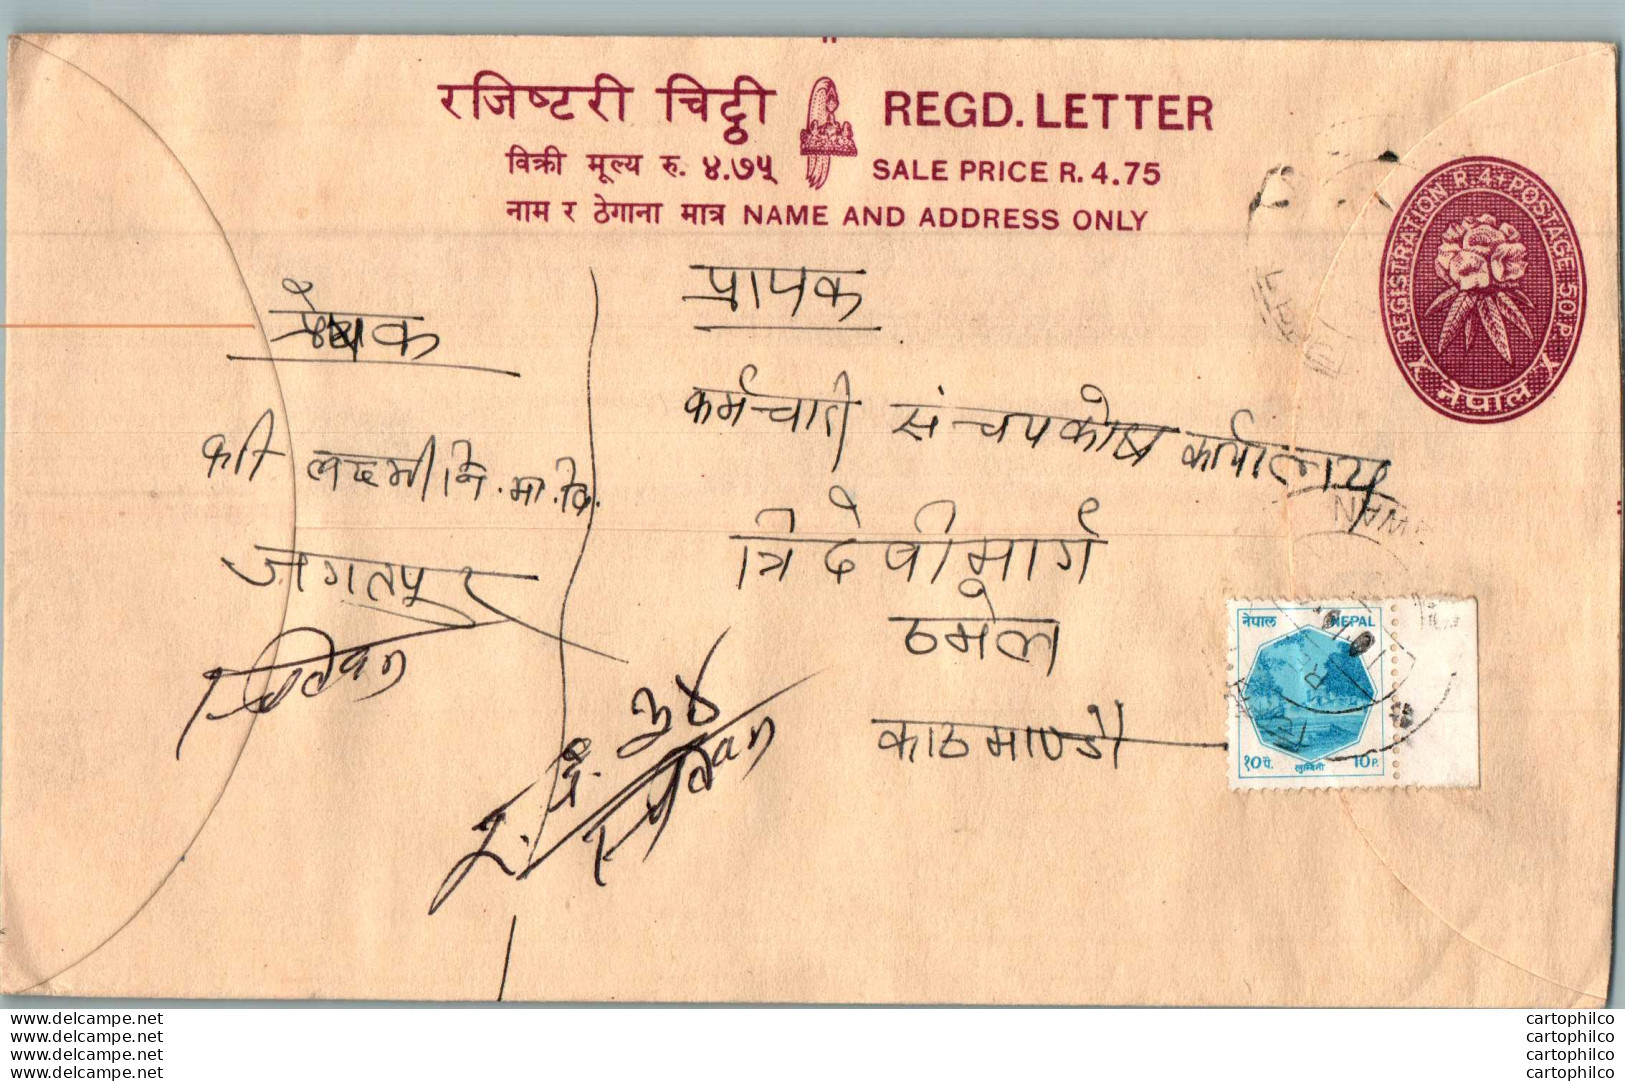 रजिष्टरी चिट्ठी REGD. LETTER
विक्री मूल्य रु. ४.७५ SALE PRICE R. 4.75
नाम र ठेगाना मात्र NAME AND ADDRESS ONLY
REGISTRATION R. 4 POSTAGE 50 P.
नेपाल
प्रेषक
प्रापक
कर्मचारी संचयकोष कार्यालय
त्रिदेवीमार्ग
ठमेल
काठमाण्डौ
लक्ष्मी नि.मा.वि.
जगतपुर
चितवन
३४
चितवन
नेपाल NEPAL
१० पै. लुम्बिनी 10 P.
www.delcampe.net
www.delcampe.net
www.delcampe.net
www.delcampe.net
cartophilco
cartophilco
cartophilco
cartophilco